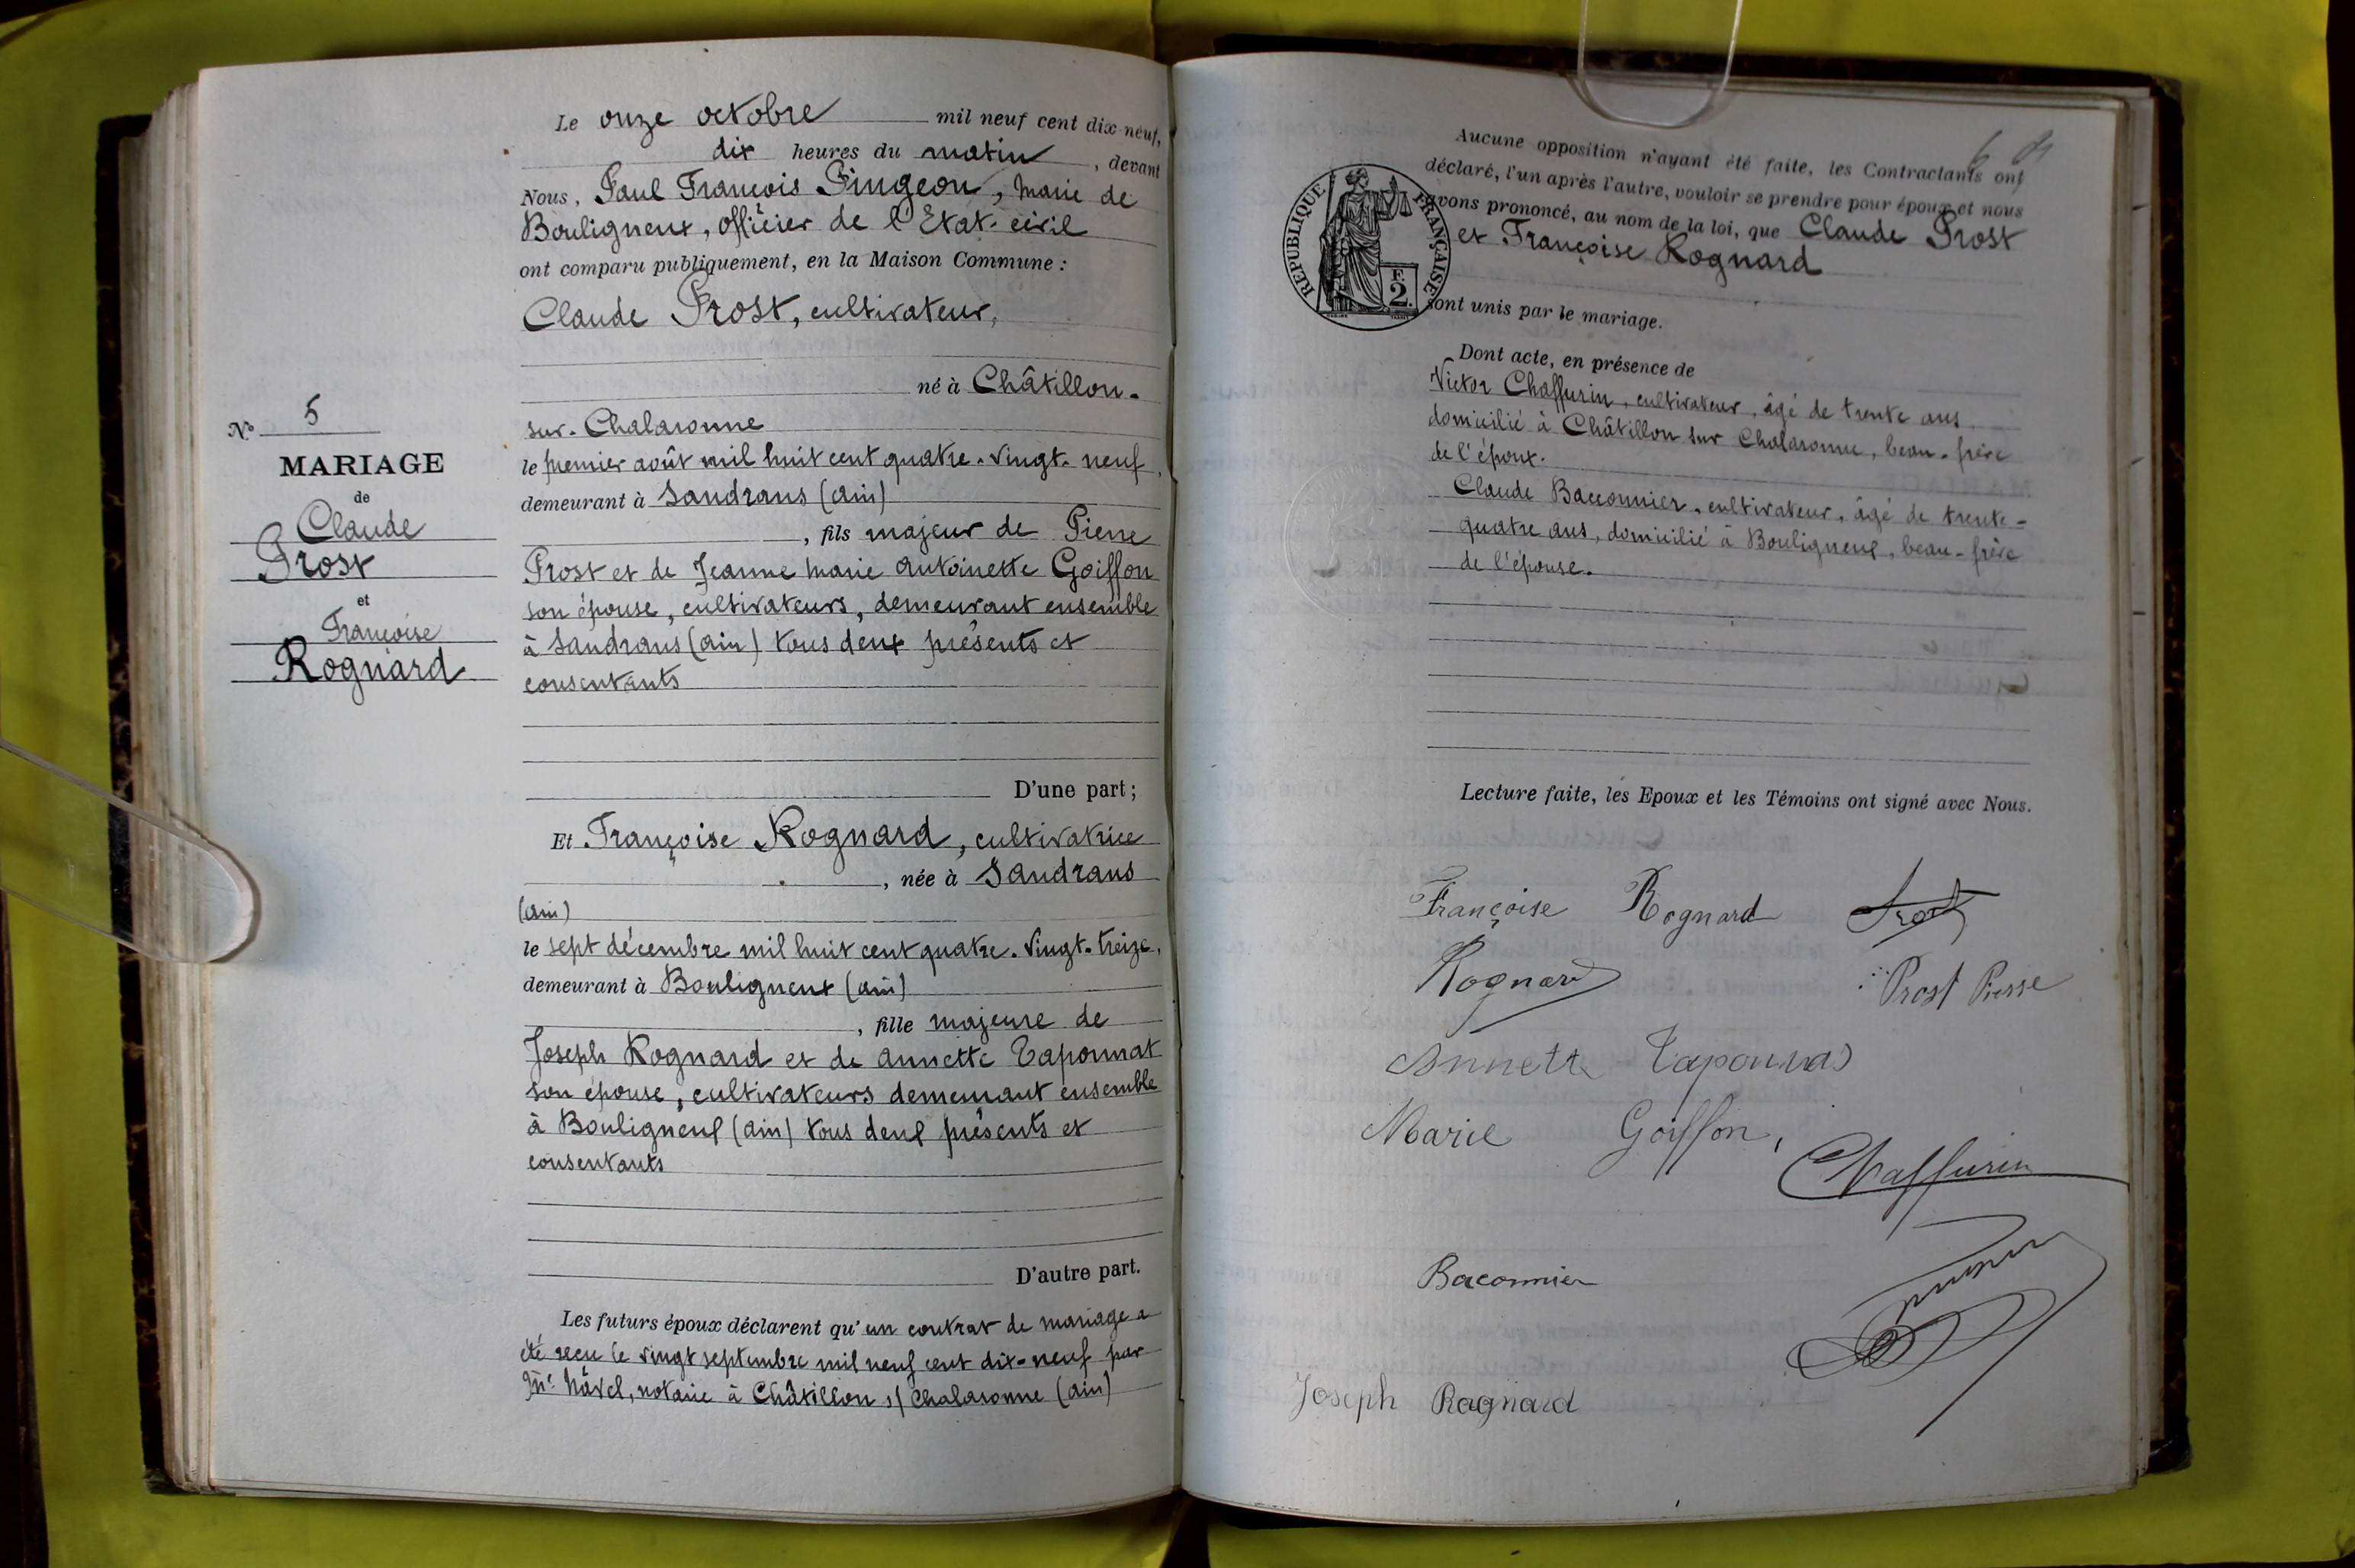 Le onze octobre mil neuf cent dix-neuf,
dix heures du matin, devant
Nous, Paul François Pingeon, Maire de
Bouligneux, officier de l'Etat-civil
ont comparu publiquement, en la Maison Commune :
Claude Prost, cultivateur,
né à Châtillon-
sur-Chalaronne
le premier août mil huit cent quatre-vingt-neuf,
demeurant à Sandrans (ain)
, fils majeur de Pierre
Prost et de Jeanne Marie Antoinette Goiffon
son épouse, cultivateurs, demeurant ensemble
à Sandrans (ain) tous deux présents et
consentants
D'une part;
Et Françoise Rognard, cultivatrice
, née à Sandrans
(ain)
le sept décembre mil huit cent quatre-vingt-treize,
demeurant à Bouligneux (ain)
, fille majeure de
Joseph Rognard et de Annette Taponnat
son épouse, cultivateurs demeurant ensemble
à Bouligneux (ain) tous deux présents et
consentants
D'autre part.
Les futurs époux déclarent qu'un contrat de mariage a
été reçu le vingt septembre mil neuf cent dix-neuf par
Me Navel, notaire à Châtillon s/ Chalaronne (ain)
No 5
MARIAGE
de
Claude
Prost
et
Françoise
Rognard
Aucune opposition n'ayant été faite, les Contractants ont
déclaré, l'un après l'autre, vouloir se prendre pour époux et nous
avons prononcé, au nom de la loi, que Claude Prost
et Françoise Rognard
sont unis par le mariage.
REPUBLIQUE FRANÇAISE
F.
2.
Dont acte, en présence de
Victor Chaffurin, cultivateur, âgé de trente ans,
domicilié à Châtillon sur Chalaronne, beau-frère
de l'époux.
Claude Bacconnier, cultivateur, âgé de trente-
quatre ans, domicilié à Bouligneux, beau-frère
de l'épouse.
Lecture faite, les Epoux et les Témoins ont signé avec Nous.
Françoise Rognard Prost
Rognard Prost Pierre
Annette Taponnas
Marie Goiffon,
Chaffurin
Baconnier
Joseph Rognard